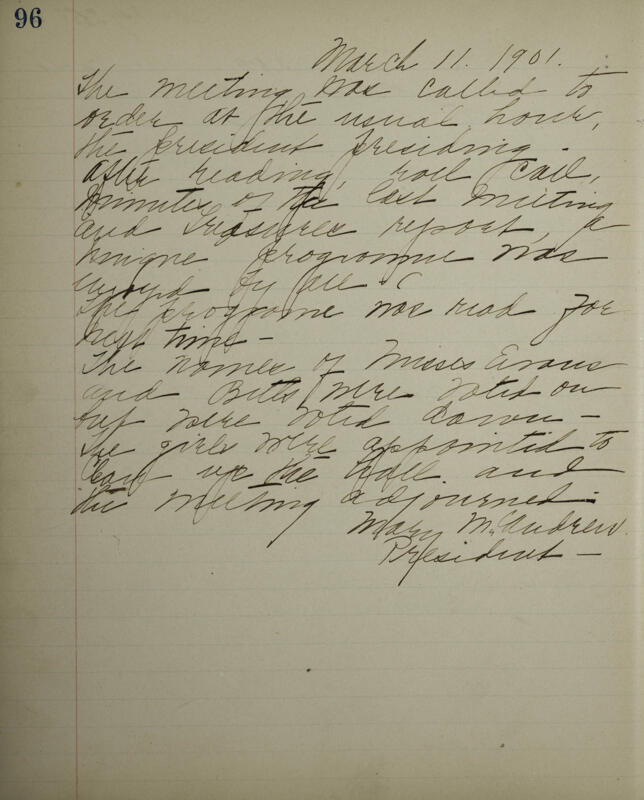 96
March 11. 1901.
The meeting was called to
order at the usual hour,
the president presiding.
After reading, roll call,
minutes of the last meeting
and treasures report, a
unique programme was
enjoyed by all.
The programe was read for
next time—
The names of Misses Evans
and Betts were voted on
but were voted down—
The girls were appointed to
clean up the hall and
the meeting adjourned.
Mary McAndrew.
President—